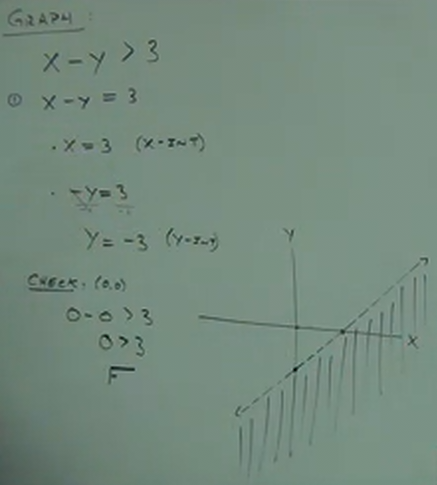 GRAPH:
X - Y > 3
① X - Y = 3
· X = 3 (X-INT)
· -Y = 3
Y = -3 (Y-INT)
CHECK: (0,0)
0 - 0 > 3
0 > 3
F
Y
X